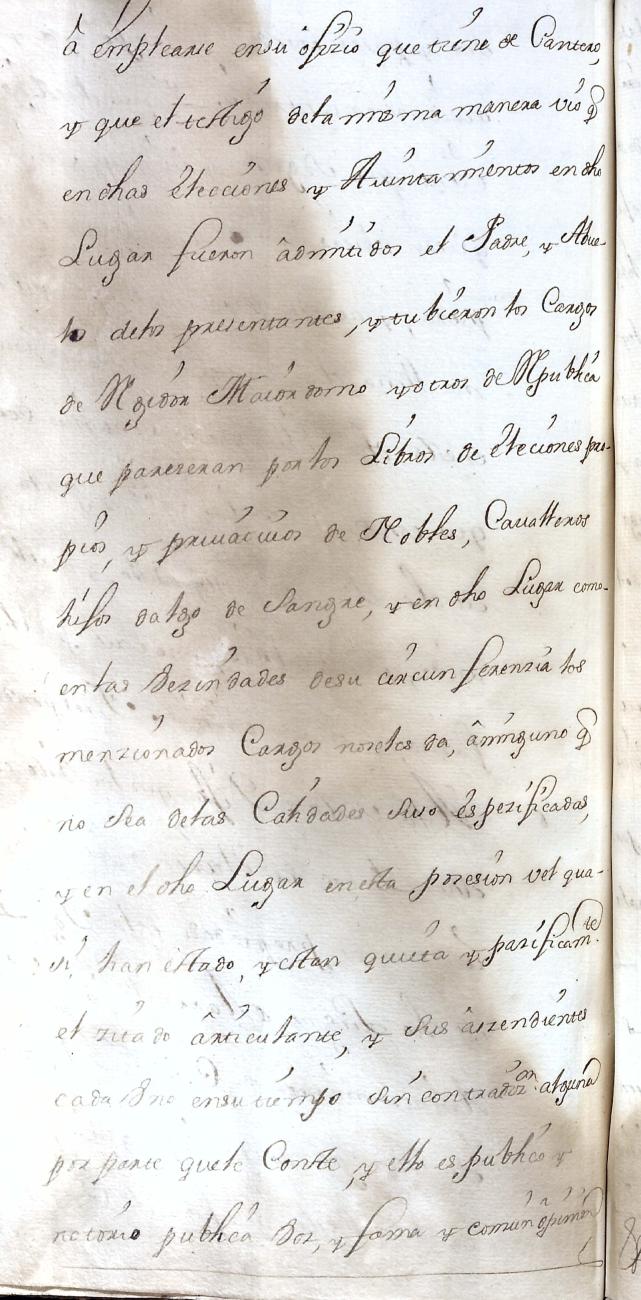 â emplearse ensu ofizio que tiene de Cantero,
y que el testigo dela misma manera vio q̃
en dhas Elecciones y Aiuntamientos en dho
Lugar fueron âdmitidos el Padre, y Abue-
lo delos presentantes, y tubieron los Cargos
de Rejidor Maiordomo y otros de Republica
que pareceran por los Libros de Eleciones pro-
pios, y priuatiuos de Nobles, Cavalleros
hijos dalgo de Sangre, y en dho Lugar como
enlas Vezindades desu circunferenzia los
menzionados Cargos noseles da, âninguno q̃
no sea delas Calidades suso espezificadas,
y en el dho Lugar enesta posesion vel qua-
si, han estado, y estan quieta y pazificamte
el zitado ârticulante, y sus aszendientes
cada Vno ensu tiempo sin contradizon alguna
por parte quele Conste, y esto es publico y
notorio publica Voz, y fama y comun opinion